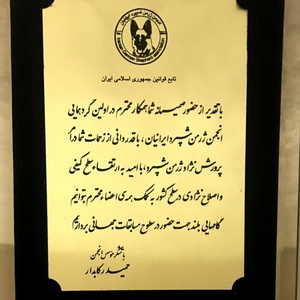 تابع قوانین جمهوری اسلامی ایران
با تقدیر از حضور صمیمانه شما همکار محترم در اولین گردهمایی
انجمن ژرمن شپرد ایرانیان، با قدردانی از زحمات شما در امر
پرورش نژاد ژرمن شپرد، با امید به ارتقاء سطح کیفی
و اصلاح نژادی در سطح کشور به کمک همه ی اعضاء محترم بتوانیم
گامهایی بلند جهت حضور در سطوح مسابقات جهانی برداریم
با تشکر موسس انجمن
حمید رکابدار